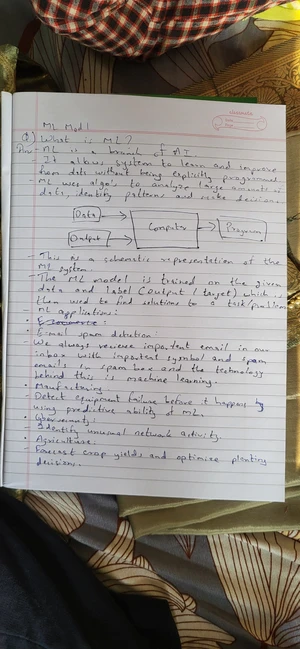 ML Model
Q) What is ML?
Ans - ML is a branch of AI
- It allows system to learn and improve
from data without being explicitly programmed
- ML uses algo's to analyze large amounts of
data, identity patterns and make decisions
Data
Output
Computer
Program
- This is a schematic representation of the
ML system.
- The ML model is trained on the given
data and label (output / target) which is
then used to find solutions to a task/problem
- ML applications:
• E-commerce:
• E-mail spam detection
- We always recieve important email in our
inbox with important symbol and spam
emails in spam box and the technology
behind this is machine learning.
• Manufacturing:
- Detect equipment failure before it happens by
using predictive ability of ML.
• Cybersecurity:
Identify unusual network activity.
• Agriculture:
Forecast crop yields and optimize planting
decisions.